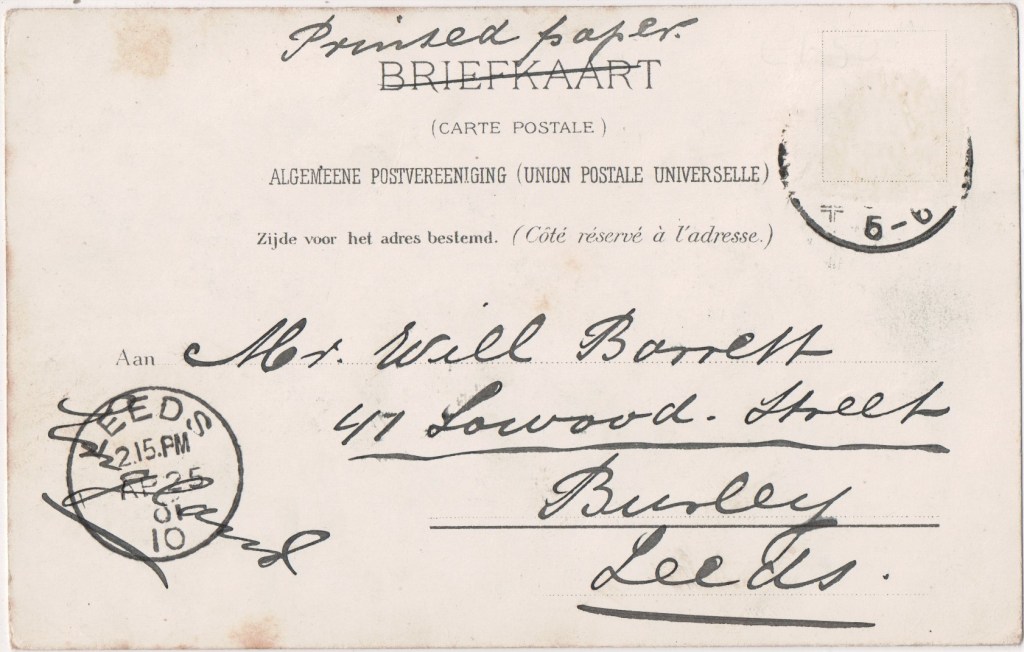 Printed paper.
BRIEFKAART
(CARTE POSTALE)
ALGEMEENE POSTVEREENIGING (UNION POSTALE UNIVERSELLE)
Zijde voor het adres bestemd. (Côté réservé à l'adresse.)
5-6
Aan Mr. Will Barrett
47 Lowood. Street
Burley
Leeds.
LEEDS
2.15.PM
AP 25
01
10